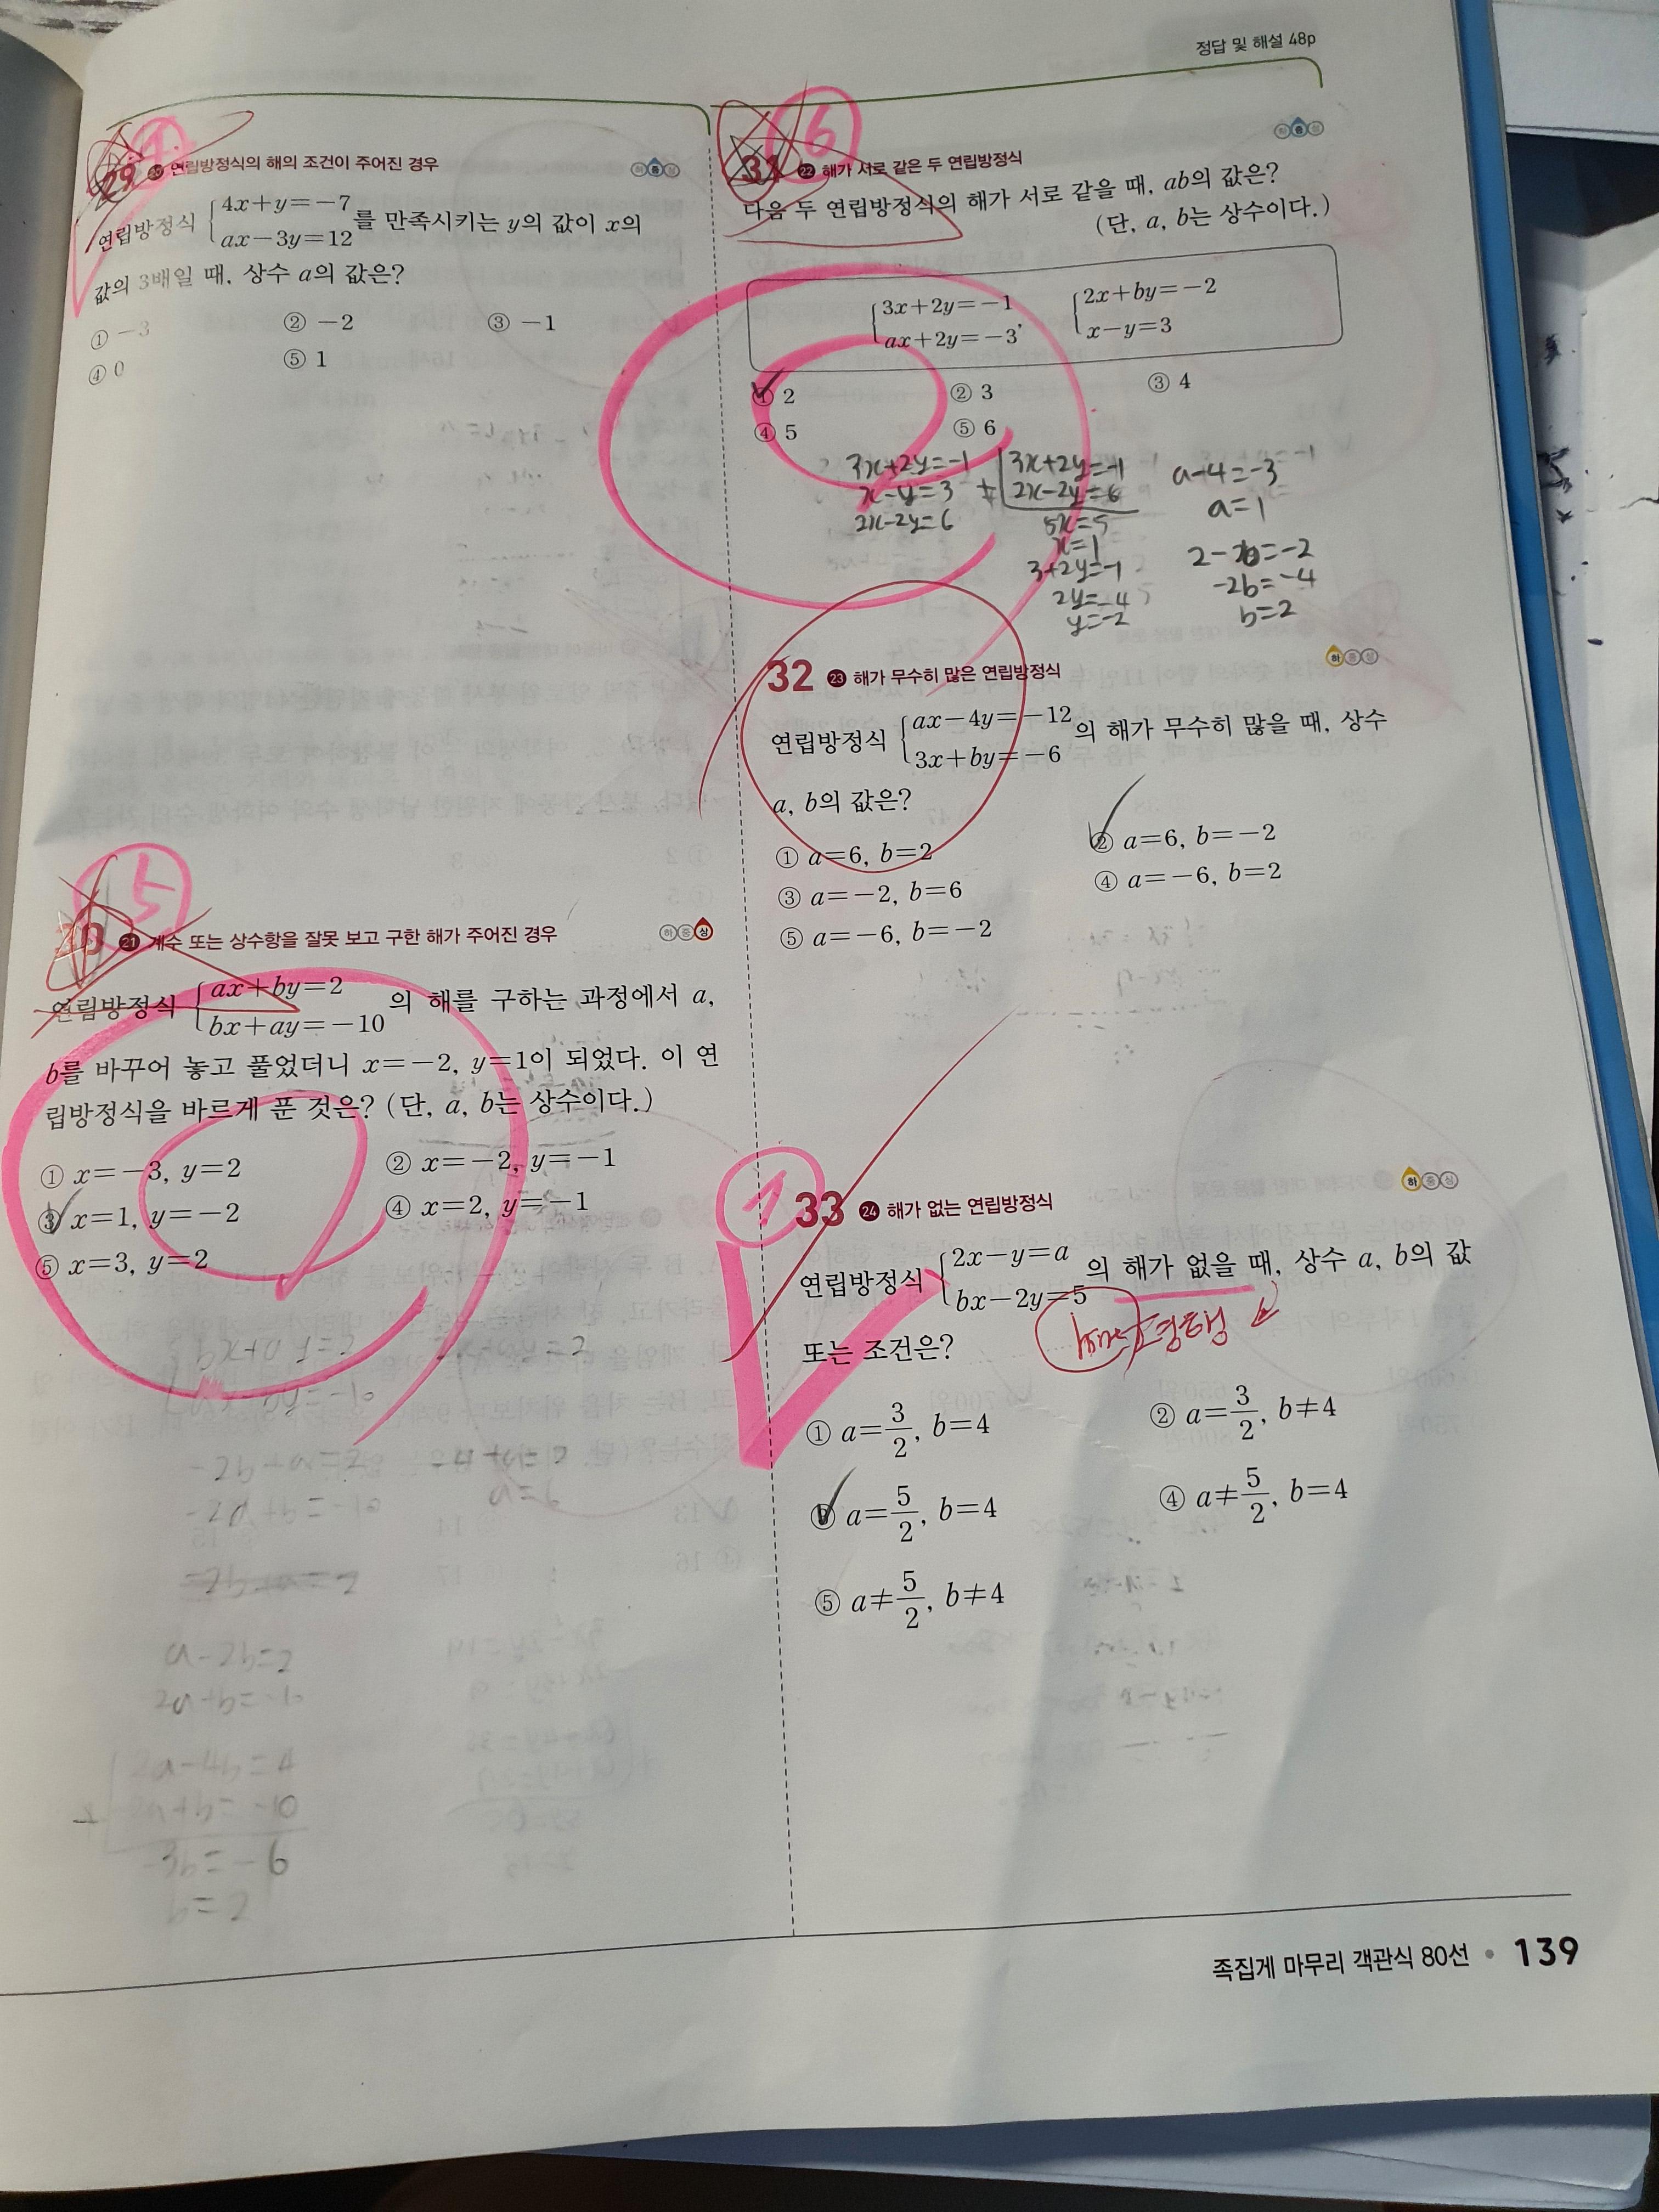 정답 및 해설 48p
29 연립방정식의 해의 조건이 주어진 경우 하 중 상
연립방정식 { 4x+y=-7
ax-3y=12 를 만족시키는 y의 값이 x의
값의 3배일 때, 상수 a의 값은?
① -3 ② -2 ③ -1
④ 0 ⑤ 1
5
30 21 계수 또는 상수항을 잘못 보고 구한 해가 주어진 경우 하 중 상
연립방정식 { ax+by=2
bx+ay=-10 의 해를 구하는 과정에서 a,
b를 바꾸어 놓고 풀었더니 x=-2, y=1이 되었다. 이 연
립방정식을 바르게 푼 것은? (단, a, b는 상수이다.)
① x=-3, y=2 ② x=-2, y=-1
③ x=1, y=-2 ④ x=2, y=-1
⑤ x=3, y=2
-2b+a=2
a-2b=2
2a+b=-10
2a-4b=4
2a+b=-10
-3b=-6
b=2
6
31 22 해가 서로 같은 두 연립방정식 하 중 상
다음 두 연립방정식의 해가 서로 같을 때, ab의 값은?
(단, a, b는 상수이다.)
{ 3x+2y=-1
ax+2y=-3 , { 2x+by=-2
x-y=3
① 2 ② 3 ③ 4
④ 5 ⑤ 6
3x+2y=-1
x-y=3
2x-2y=6
3x+2y=-1
+ 2x-2y=6
5x=5
x=1
3+2y=-1
2y=-4
y=-2
a-4=-3
a=1
2-2b=-2
-2b=-4
b=2
32 23 해가 무수히 많은 연립방정식 하 중 상
연립방정식 { ax-4y=-12
3x+by=-6 의 해가 무수히 많을 때, 상수
a, b의 값은?
① a=6, b=2 ② a=6, b=-2
③ a=-2, b=6 ④ a=-6, b=2
⑤ a=-6, b=-2
33 24 해가 없는 연립방정식 하 중 상
연립방정식 { 2x-y=a
bx-2y=5 의 해가 없을 때, 상수 a, b의 값
또는 조건은?
평행
① a=3/2, b=4 ② a=3/2, b≠4
③ a=5/2, b=4 ④ a≠5/2, b=4
⑤ a≠5/2, b≠4
족집게 마무리 객관식 80선 • 139